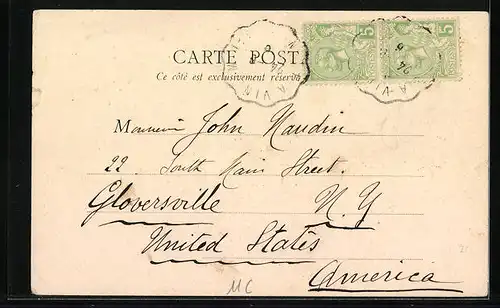 CARTE POST
Ce côté est exclusivement réservé
5
5
Monsieur John Naudin
22. South Main Street.
Gloversville N. Y
United States
America
MC